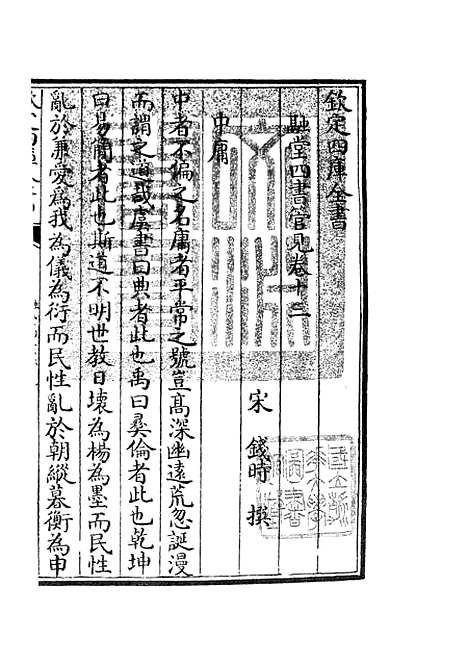 欽定四庫全書
融堂四書管見卷十三
宋 錢時 撰
中庸
中者不偏之名庸者平常之號豈髙深幽遠荒忽誕漫
而謂之道哉虞書曰典者此也禹曰彛倫者此也乾坤
曰易簡者此也斯道不明世教日壞為楊為墨而民性
亂於兼愛為我為儀為衍而民性亂於朝縱暮衡為申